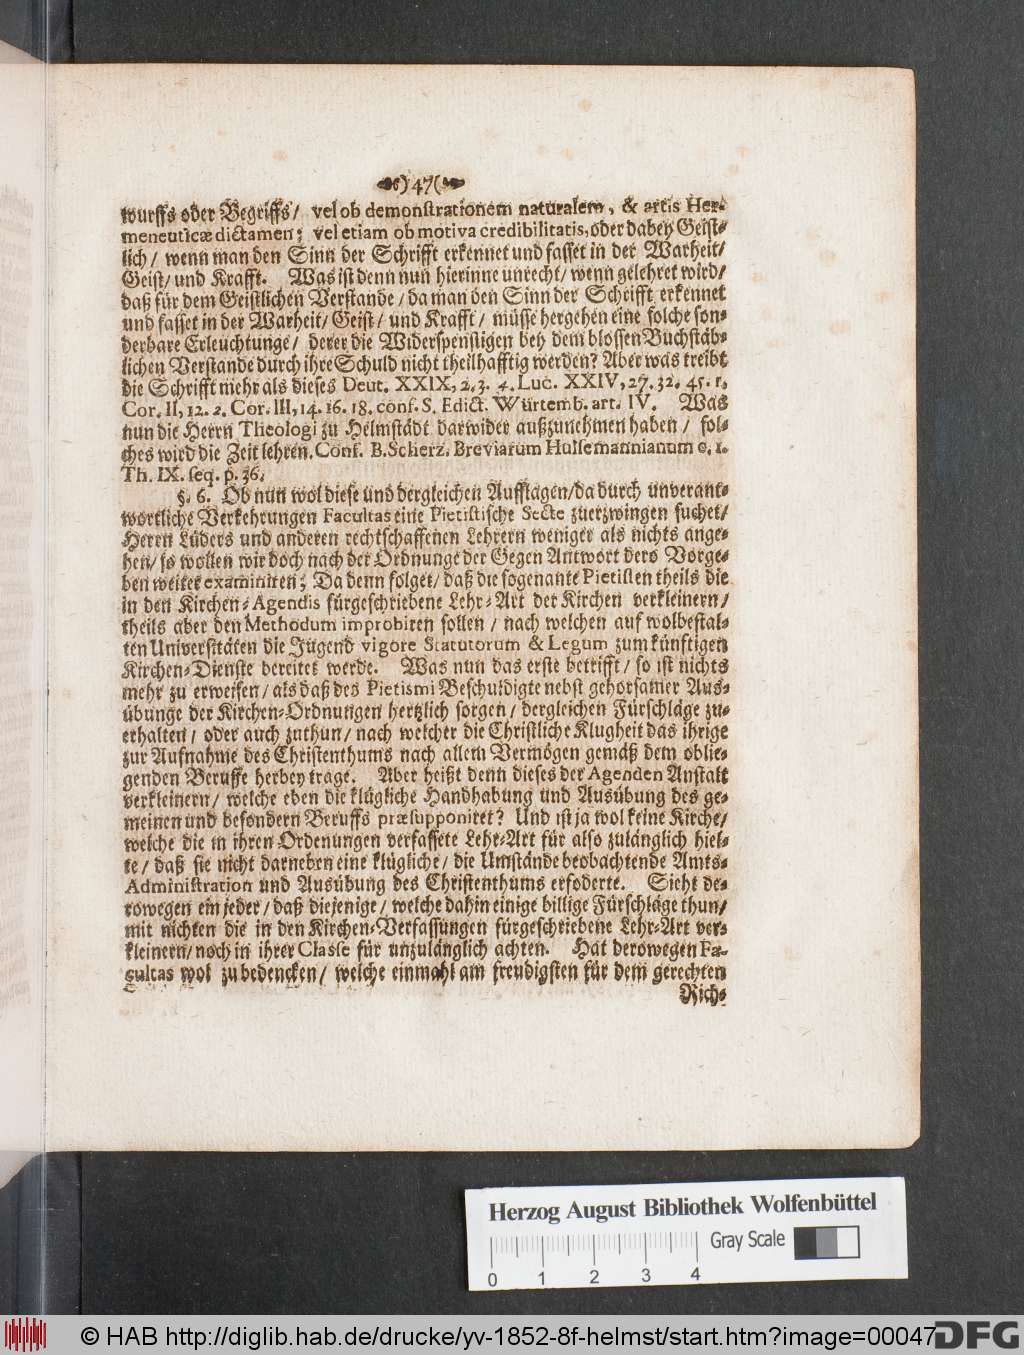 )47(
wurffs oder Begriffs/ vel ob demonstrationem naturalem, & artis Her-
meneuticæ dictamen; vel etiam ob motiva credibilitatis, oder dabey Geist-
lich/ wenn man den Sinn der Schrifft erkennet und fasset in der Warheit/
Geist/ und Krafft. Was ist denn nun hierinne unrecht/ wenn gelehret wird/
daß für dem Geistlichen Verstande/ da man den Sinn der Schrifft erkennet
und fasset in der Warheit/ Geist/ und Krafft/ müsse hergehen eine solche son-
derbare Erleuchtunge/ derer die Widerspenstigen bey dem blossen Buchstäb-
lichen Verstande durch ihre Schuld nicht theilhafftig werden? Aber was treibt
die Schrifft mehr als dieses Deut. XXIX, 2. 3. 4. Luc. XXIV, 27. 32. 45. 1.
Cor. II, 12. 2. Cor. III, 14. 16. 18. conf. S. Edict. Würtemb. art. IV. Was
nun die Herrn Theologi zu Helmstädt darwider außzunehmen haben/ sol-
ches wird die Zeit lehren. Conf. B. Scherz. Breviarum Hulsemannianum c. 1.
Th. IX. seq. p. 36.
§. 6. Ob nun wol diese und dergleichen Aufflagen/ da durch unverant-
wortliche Verkehrungen Facultas eine Pietistische Secte zuerzwingen suchet/
Herrn Lüders und anderen rechtschaffenen Lehrern weniger als nichts ange-
hen/ so wollen wir doch nach der Ordnunge der Gegen Antwort dero Vorge-
ben weiter examiniren; Da denn folget/ daß die sogenante Pietisten theils die
in den Kirchen-Agendis fürgeschriebene Lehr-Art der Kirchen verkleinern/
theils aber den Methodum improbiren sollen/ nach welchen auf wolbestal-
ten Universitäten die Jugend vigore Statutorum & Legum zum künftigen
Kirchen-Dienste bereitet werde. Was nun das erste betrifft/ so ist nichts
mehr zu erweisen/ als daß des Pietismi Beschuldigte nebst gehorsamer Aus-
übunge der Kirchen-Ordnungen hertzlich sorgen/ dergleichen Fürschläge zu-
erhalten/ oder auch zuthun/ nach welcher die Christliche Klugheit das ihrige
zur Aufnahme des Christenthums nach allem Vermögen gemäß dem oblie-
genden Beruffe herbey trage. Aber heißt denn dieses der Agenden Anstalt
verkleinern/ welche eben die klügliche Handhabung und Ausübung des ge-
meinen und besondern Beruffs præsupponiret? Und ist ja wol keine Kirche/
welche die in ihren Ordenungen verfassete Lehr-Art für also zulänglich hiel-
te/ daß sie nicht darneben eine klügliche/ die Umstände beobachtende Amts-
Administration und Ausübung des Christenthums erfoderte. Sieht de-
rowegen ein jeder/ daß diejenige/ welche dahin einige billige Fürschläge thun/
mit nichten die in den Kirchen-Verfassungen fürgeschriebene Lehr-Art ver-
kleinern/ noch in ihrer Classe für unzulänglich achten. Hat derowegen Fa-
cultas wol zu bedencken/ welche einmahl am freudigsten für dem gerechten
Rich-
Herzog August Bibliothek Wolfenbüttel
Gray Scale
0 1 2 3 4
© HAB http://diglib.hab.de/drucke/yv-1852-8f-helmst/start.htm?image=00047
DFG